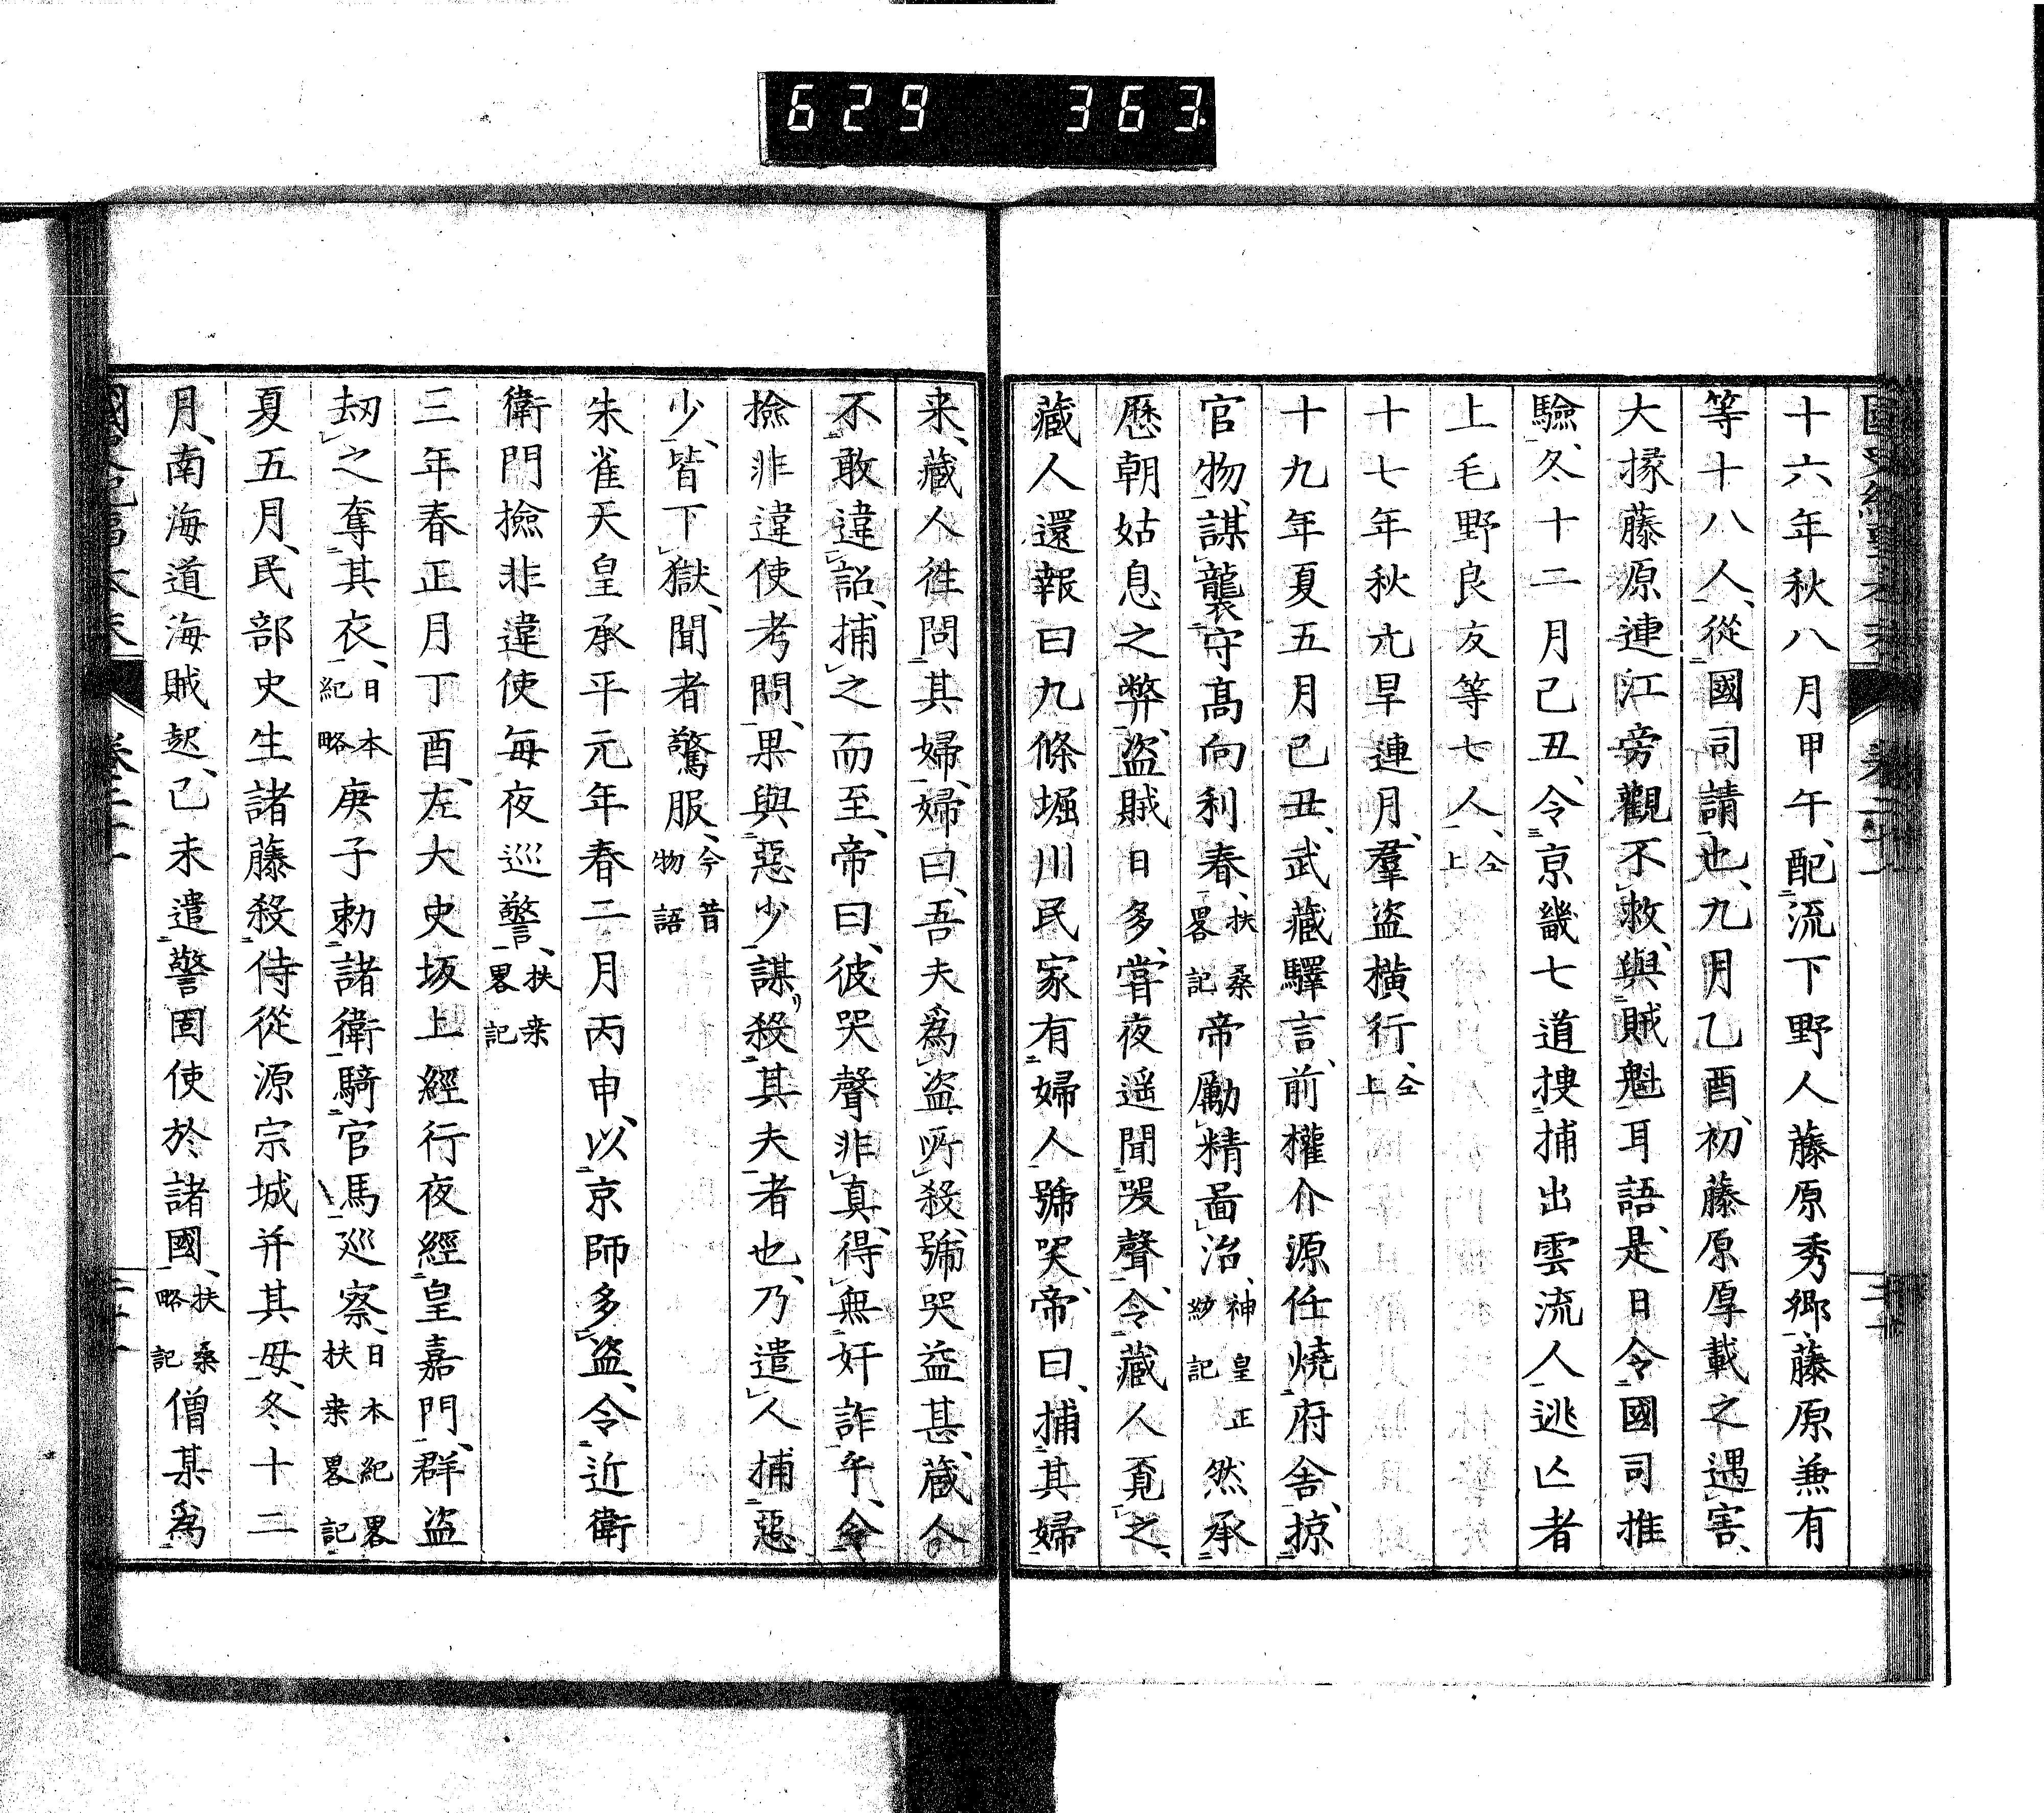 629 363
十六年秋八月甲午、配流下野人藤原秀郷、藤原兼有
等十八人、從國司請也、九月乙酉、初藤原厚載之遇害、
大掾藤原連江旁觀不救、與賊魁耳語、是日令國司推
驗、冬十二月己丑、令京畿七道捜捕出雲流人逃亾者
上毛野良友等七人、仝上
十七年秋亢旱連月、羣盗橫行、仝上
十九年夏五月己丑、武藏驛言、前權介源任燒府舍、掠
官物、謀襲守高向利春、扶桑畧記帝勵精啚治、神皇正紗記然承
歷朝姑息之弊、盗賊日多、嘗夜遥聞哭聲、令藏人覔之、
藏人還報曰九條堀川民家有婦人號哭、帝曰、捕其婦
来、藏人徃問其婦、婦曰、吾夫爲盗所殺、號哭益甚、藏人
不敢違詔、捕之而至、帝曰、彼哭聲非真、得無奸詐乎、令
撿非違使考問、果與惡少謀殺其夫者也、乃遣人捕惡
少、皆下獄、聞者驚服、今昔物語
朱雀天皇承平元年春二月丙申、以京師多盗、令近衛
衛門撿非違使每夜巡警、扶桒畧記
三年春正月丁酉、左大史坂上經行夜經皇嘉門、群盗
刼之奪其衣、日本紀略庚子勅諸衛騎官馬巡察、日本紀畧扶桒畧記
夏五月、民部史生諸藤殺侍從源宗城并其母、冬十二
月、南海道海賊起、己未遣警固使於諸國、扶桑略記僧某爲